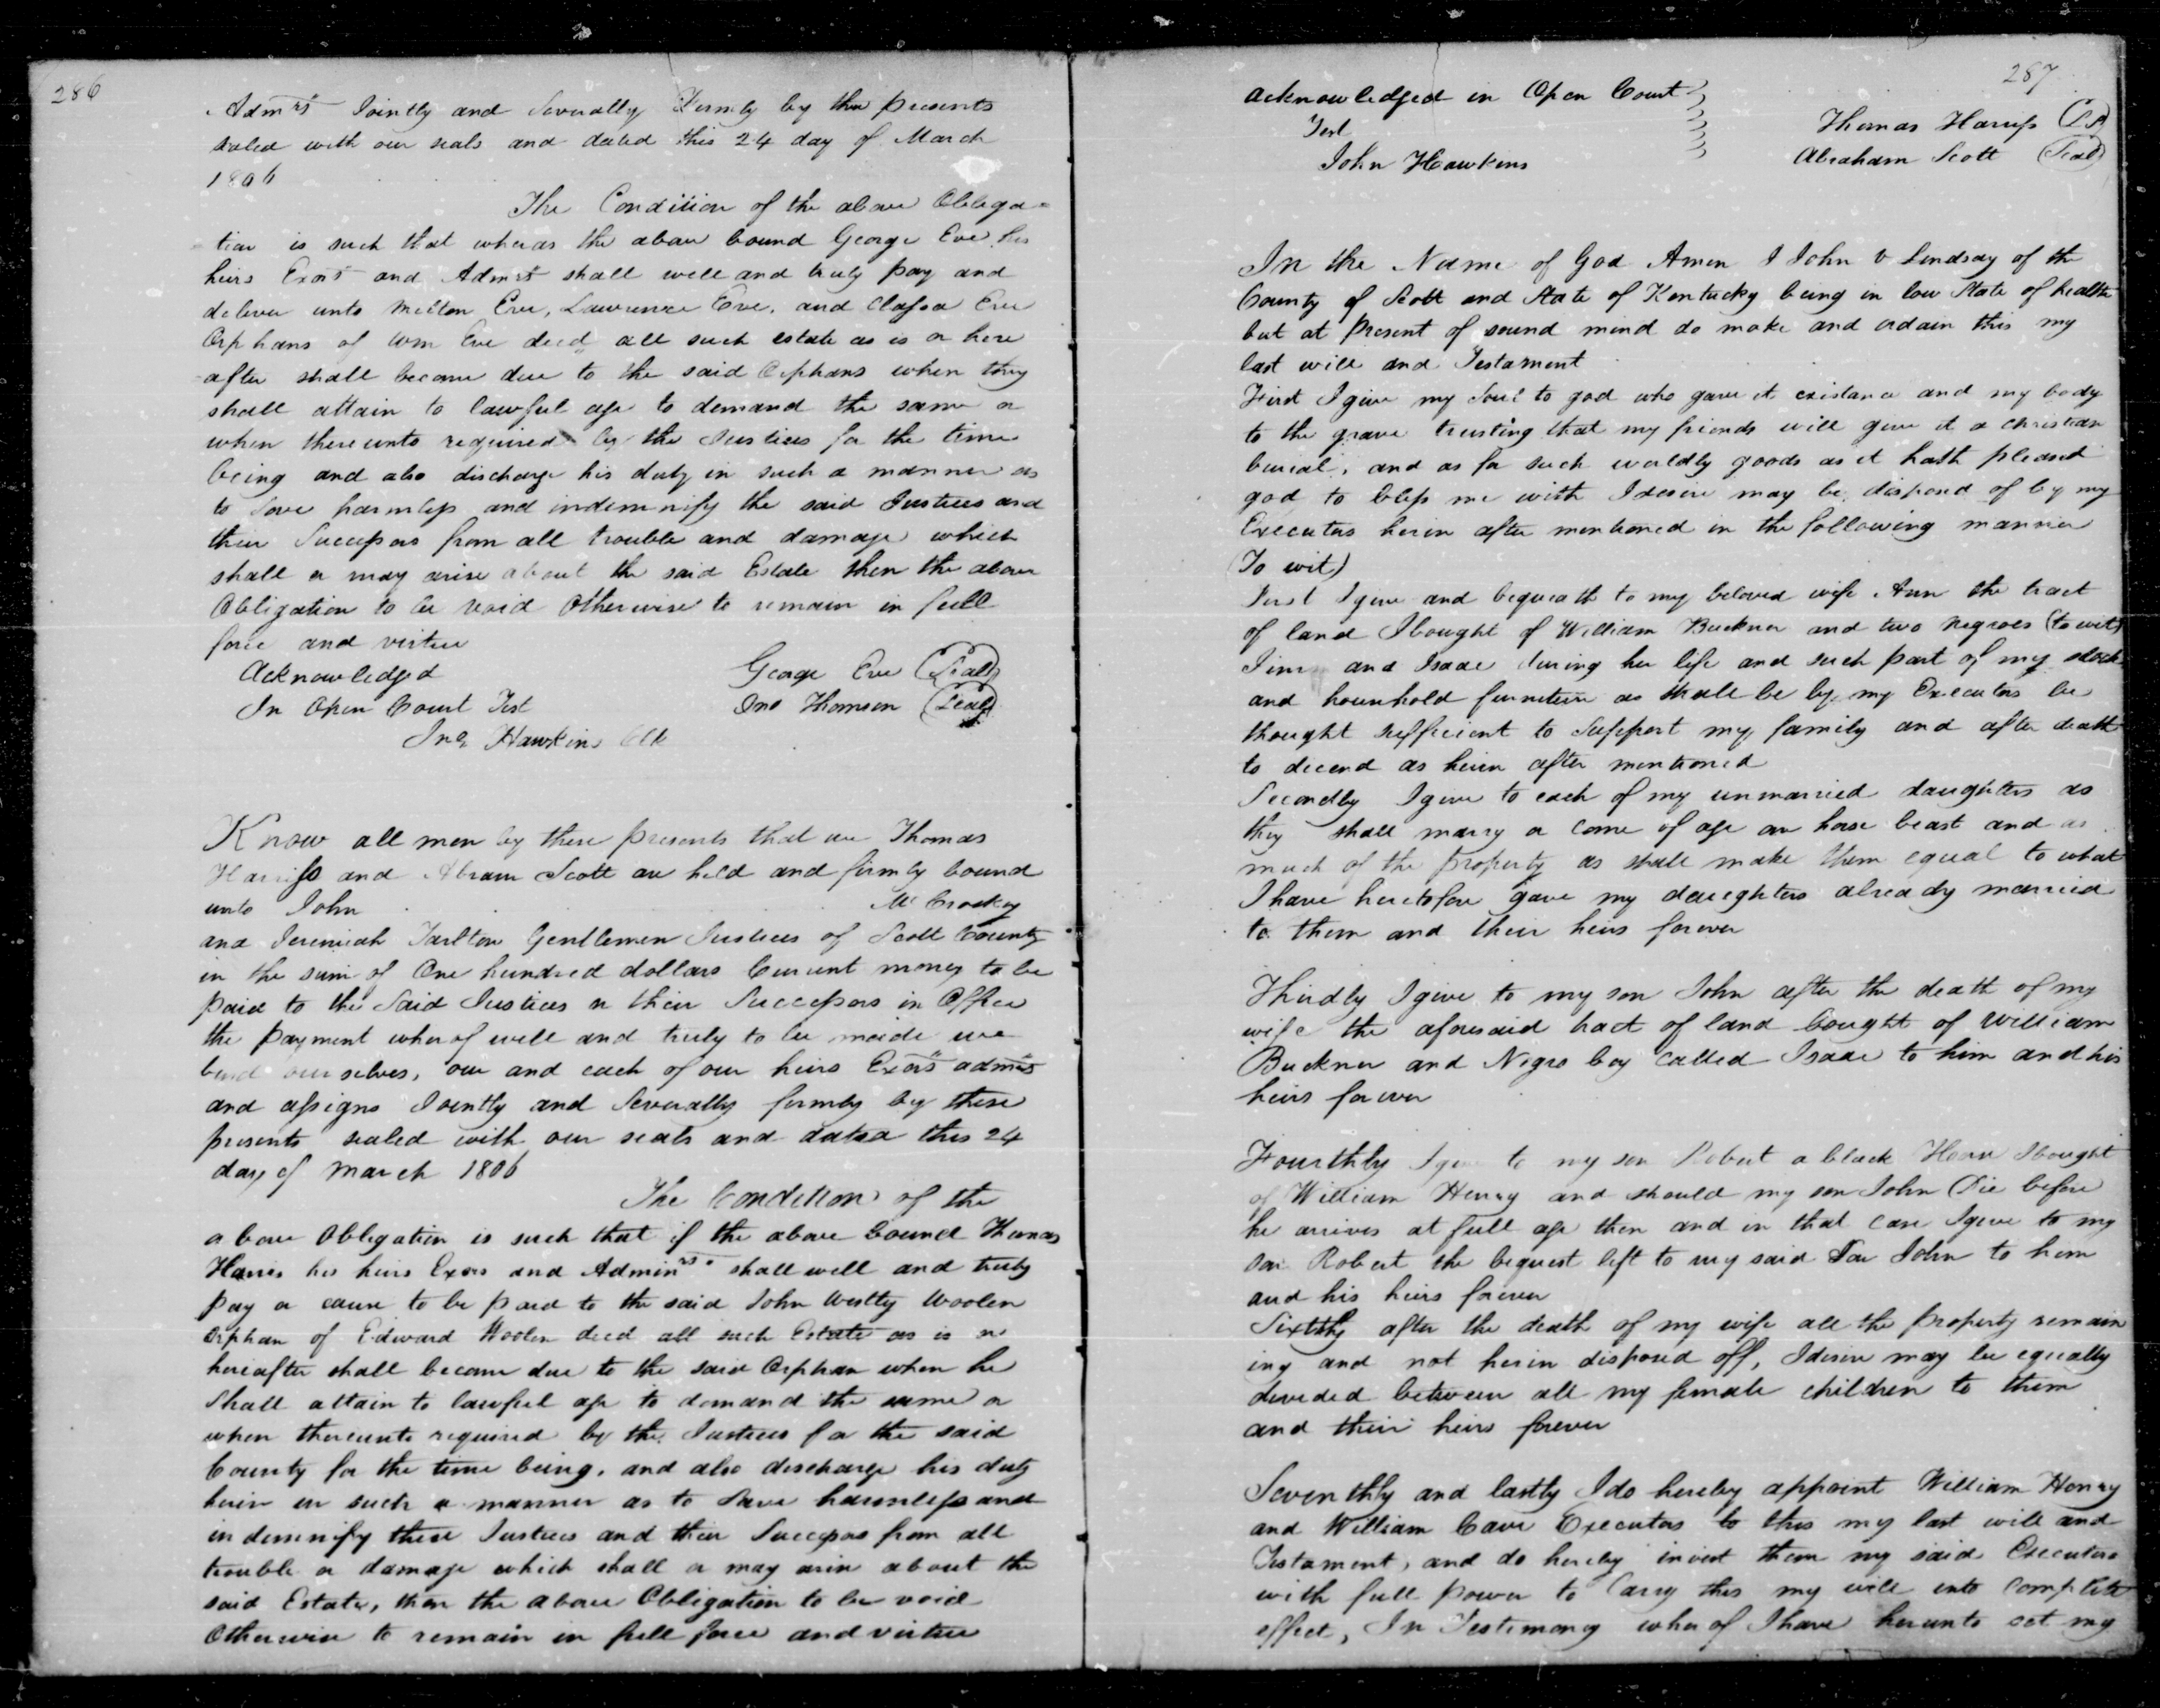 286
Admrs Jointly and Severally Firmly by thee presents
sealed with our seals and dated this 24 day of March
1806
The Condition of the above Obliga=
tion is such that wheras the above bound George Eve his
heirs Exors and Admrs shall well and truly pay and
deliver unto Milton Eve, Lawrence Eve, and Classa Eve
Orphans of Wm Eve decd all such estate as is or here
after shall become due to the said Orphans when they
shall attain to lawful age to demand the same or
when thereunto required by the Justices for the time
being and also discharge his duty in such a manner as
to Save harmless and indemnify the said Justices and
their Successors from all trouble and damage which
shall or may arise about the said Estate then the above
Obligation to be void Otherwise to remain in full
force and virtue
Acknowledged George Eve (Seal)
In Open Court Test Jno Thomson (Seal)
Jno Hawkins Clk
Know all men by these presents that we Thomas
Harriss and Abram Scott are held and firmly bound
unto John McCroskey
and Jeremiah Tarlton Gentlemen Justices of Scott County
in the sum of One hundred dollars Current money to be
paid to the Said Justices or their Successors in Office
the payment wherof well and truly to be maide we
bind ourselves, our and each of our heirs Exors admrs
and assigns Jointly and Severally firmly by these
presents sealed with our seals and dated this 24
day of March 1806
The Condition of the
above Obligation is such that if the above bound Thomas
Harris his heirs Exors and Adminrs. shall well and truly
pay or cause to be paid to the said John Westly Woolen
orphan of Edward Woolen decd all such Estate as is or
hereafter shall become due to the said Orphan when he
Shall attain to lawful age to demand the same or
when thereunto required by the Justices for the said
County for the time being, and also discharge his duty
herin in such a manner as to Save harmless and
indemnify these Justices and their Successors from all
trouble or damage which shall or may arise about the
said Estate, then the above Obligation to be void
Otherwise to remain in full force and virtue
287
acknowledged in Open Court
Test Thomas Harriss (LS)
John Hawkins Abraham Scott (Seal)
In the Name of God Amen I John V Lindsay of the
County of Scott and State of Kentucky being in low State of health
but at Present of sound mind do make and ordain this my
last will and Testament
First I give my Soul to god who gave it existance and my body
to the grave trusting that my friends will give it a christian
burial, and as for such worldly goods as it hath pleased
god to bless me with I desire may be disposed of by my
Executors herin after mentioned in the following manner
(To wit)
First I give and bequeath to my beloved wife Ann the tract
of land I bought of William Buckner and two negroes (to wit)
Jim and Isaac during her life and such part of my stock
and hounhold furneture as shall be by my Executors be
thought sufficient to Support my family and after death
to decend as herin after mentioned
Secondly I give to each of my unmarried daughters as
they shall marry or come of age an horse beast and as
much of the property as shall make them equal to what
I have heretofore gave my daughters already married
to them and their heirs forever
Thirdly I give to my son John after the death of my
wife the aforesaid tract of land bought of William
Buckner and Negro boy called Isaac to him and his
heirs forever
Fourthly I give to my son Robert a black Horse I bought
of William Henry and should my son John Die before
he arrives at full age then and in that case I give to my
son Robert the bequest left to my said Son John to him
and his heirs forever
Sixthly after the death of my wife all the property remain
ing and not herin disposed off, I desire may be equally
devided between all my female children to them
and their heirs forever
Seventhly and lastly I do hereby appoint William Henry
and William Cave Executors to this my last will and
Testament, and do hereby invest them my said Executors
with full power to Carry this my will into Complete
effect, In Testimony wherof I have herunto set my